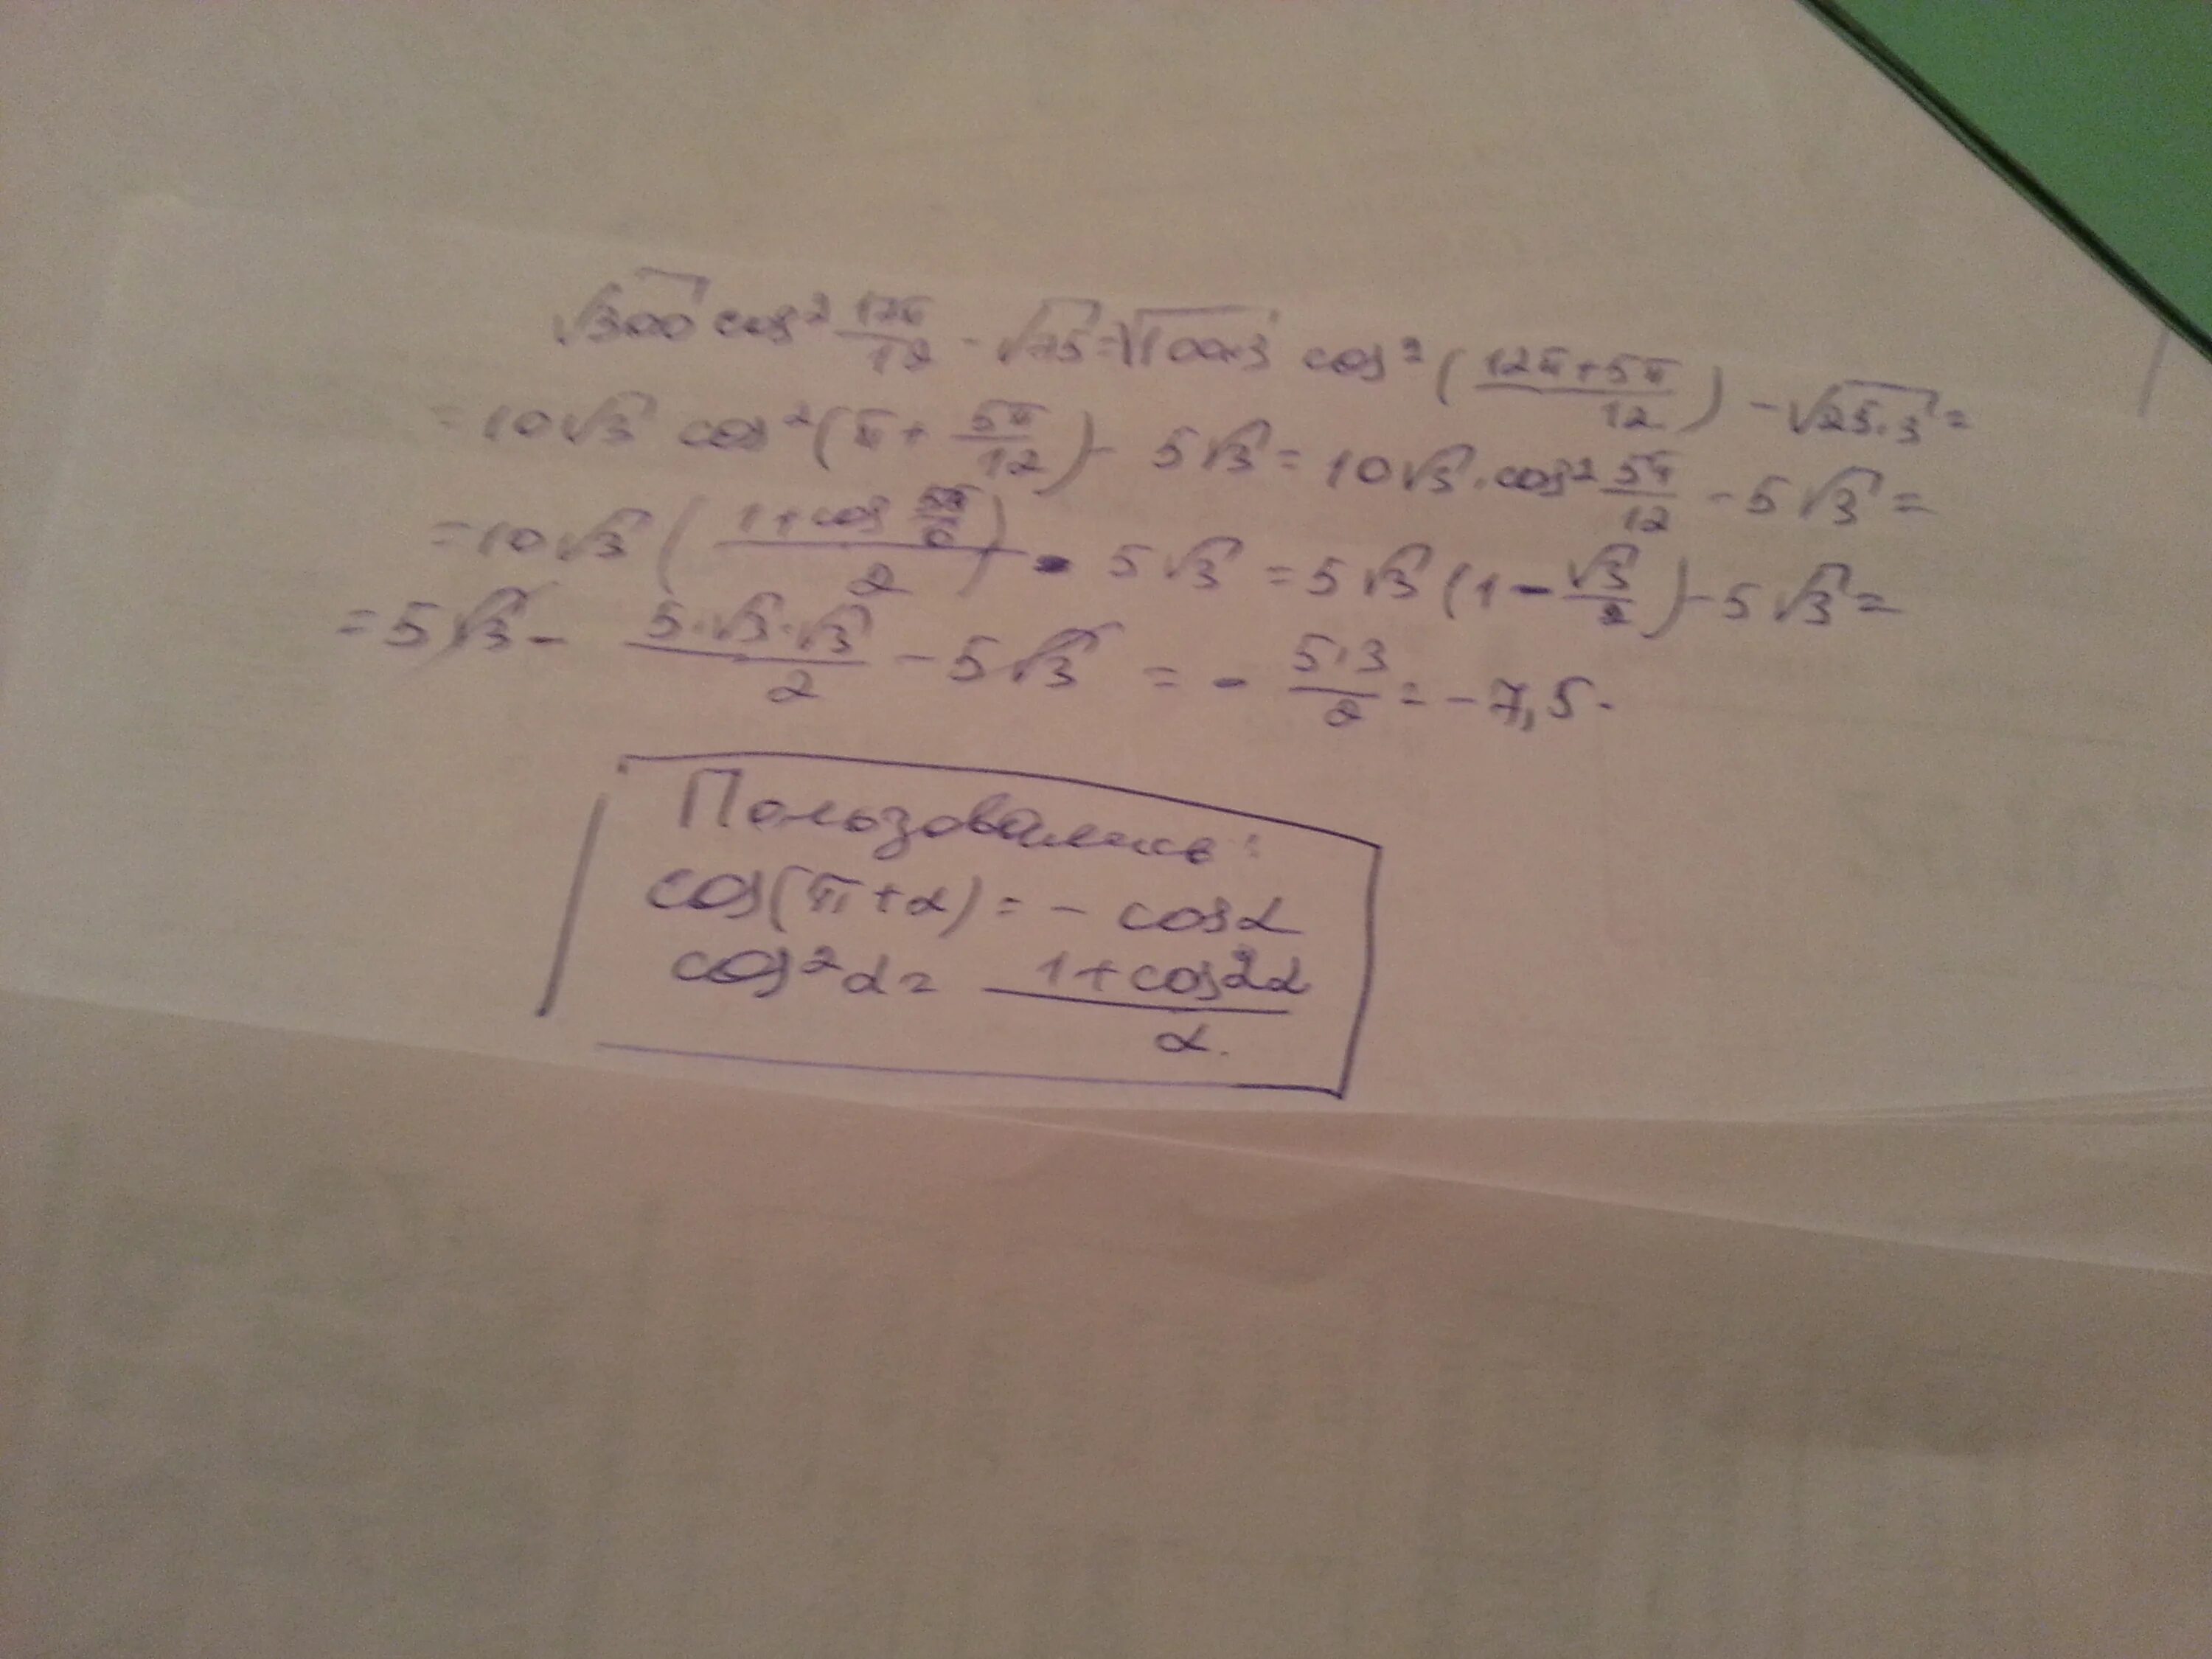 √300 cos² 17π/12 - √75 = √100·3 cos² ( (12π+5π)/12 ) - √25·3 =
= 10√3 cos² (π + 5π/12) - 5√3 = 10√3 · cos² 5π/12 - 5√3 =
= 10√3 ( (1 + cos 5π/6)/2 ) - 5√3 = 5√3 (1 - √3/2) - 5√3 =
= 5√3 - (5·√3·√3)/2 - 5√3 = - (5·3)/2 = -7,5.
Пользовались:
cos(π+α) = - cosα
cos²α = (1+cos2α)/2.